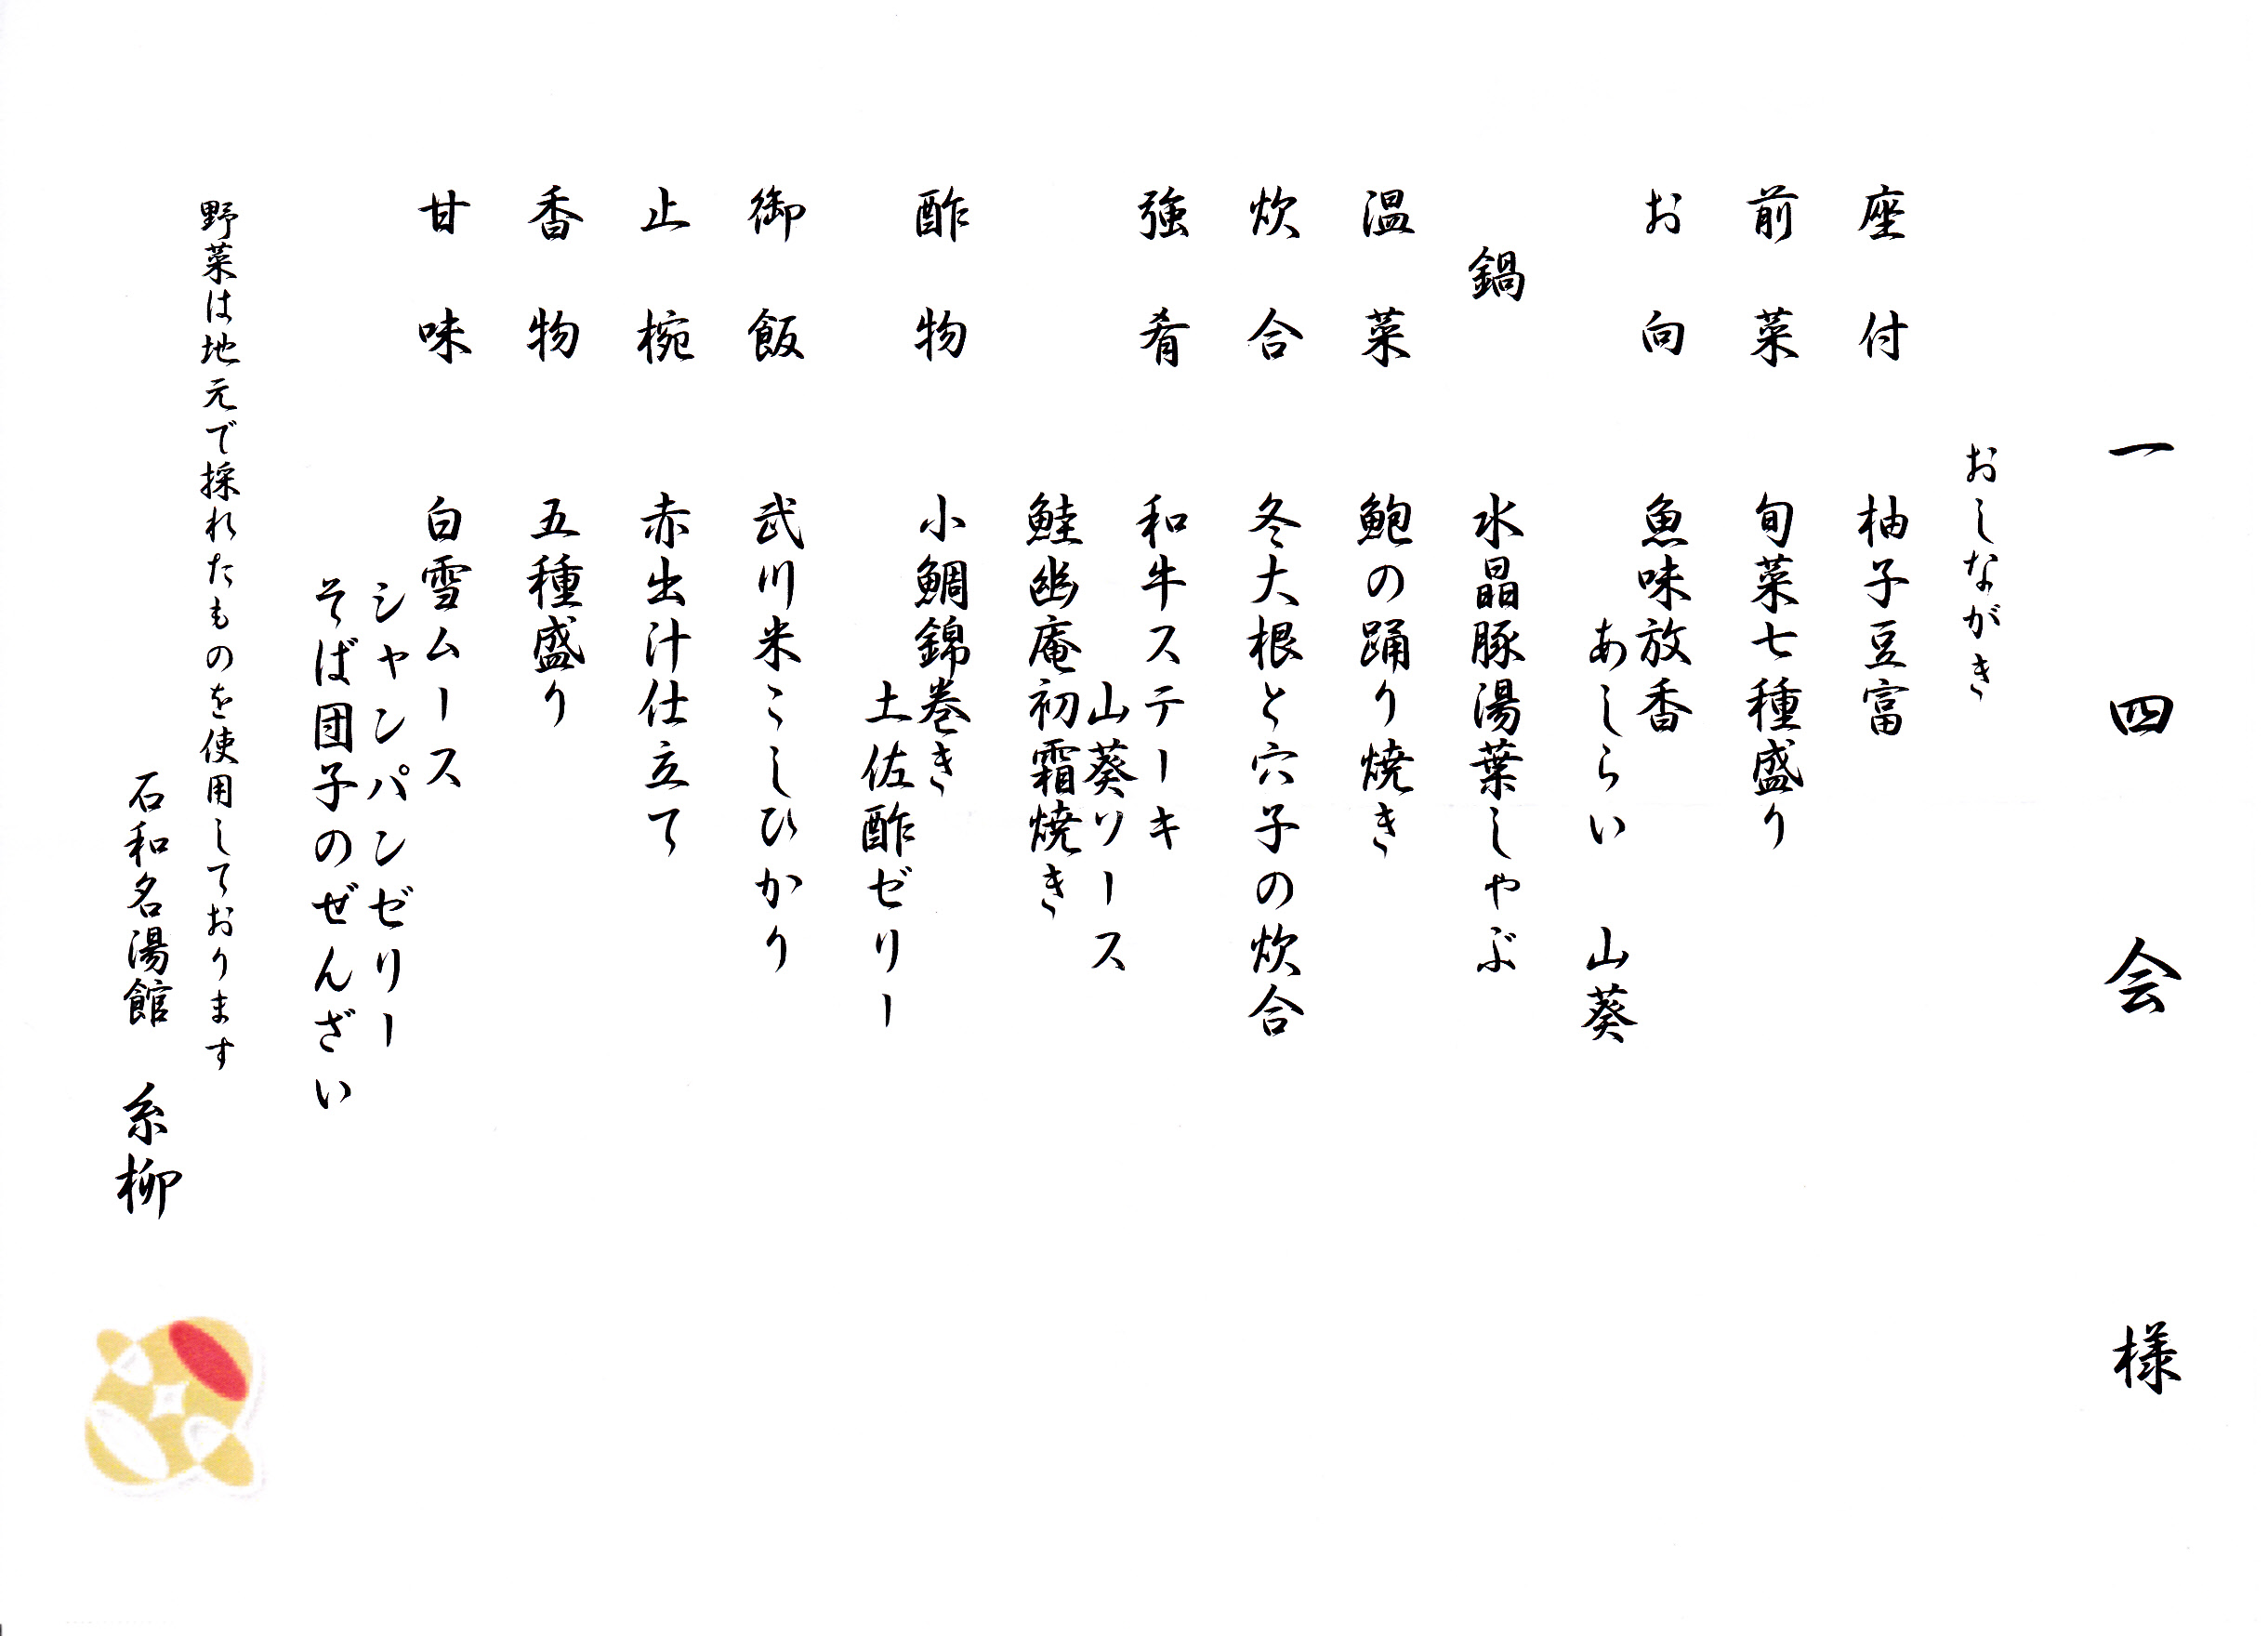 一四会様
おしながき
座付 柚子豆富
前菜 旬菜七種盛り
お向 魚味放香
あしらい 山葵
鍋 水晶豚湯葉しゃぶ
温菜 鮑の踊り焼き
炊合 冬大根と穴子の炊合
強肴 和牛ステーキ
山葵ソース
鮭幽庵初霜焼き
酢物 小鯛錦巻き
土佐酢ゼリー
御飯 武川米こしひかり
止椀 赤出汁仕立て
香物 五種盛り
甘味 白雪ムース
シャンパンゼリー
そば団子のぜんざい
野菜は地元で採れたものを使用しております
石和名湯館 糸柳